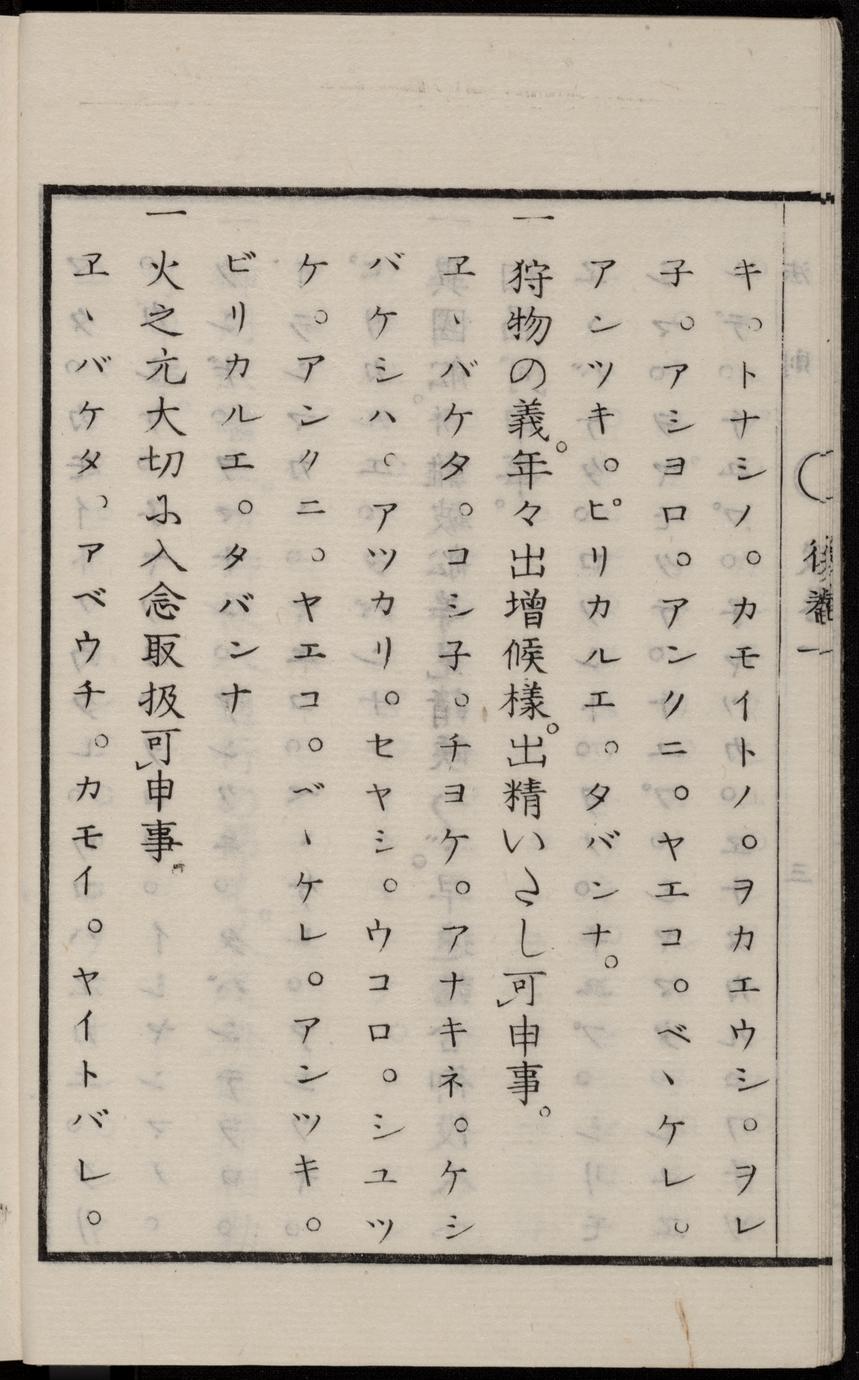 キ。トナシノ。カモイトノ。ヲカエウシ。ヲレ
子。アシヨロ。アンクニ。ヤエコ。ベヽケレ。
アンツキ。ピリカルエ。タバンナ。
一狩物の義。年々出増候様。出精いたし可申事。
ヱヽバケタ。コシ子。チヨケ。アナキネ。ケシ
バケシハ。アツカリ。セヤシ。ウコロ。シユツ
ケ。アンクニ。ヤエコ。ベヽケレ。アンツキ。
ビリカルエ。タバンナ
一火之元大切に入念取扱可申事。
ヱヽバケタ、アベウチ。カモイ。ヤイトバレ。